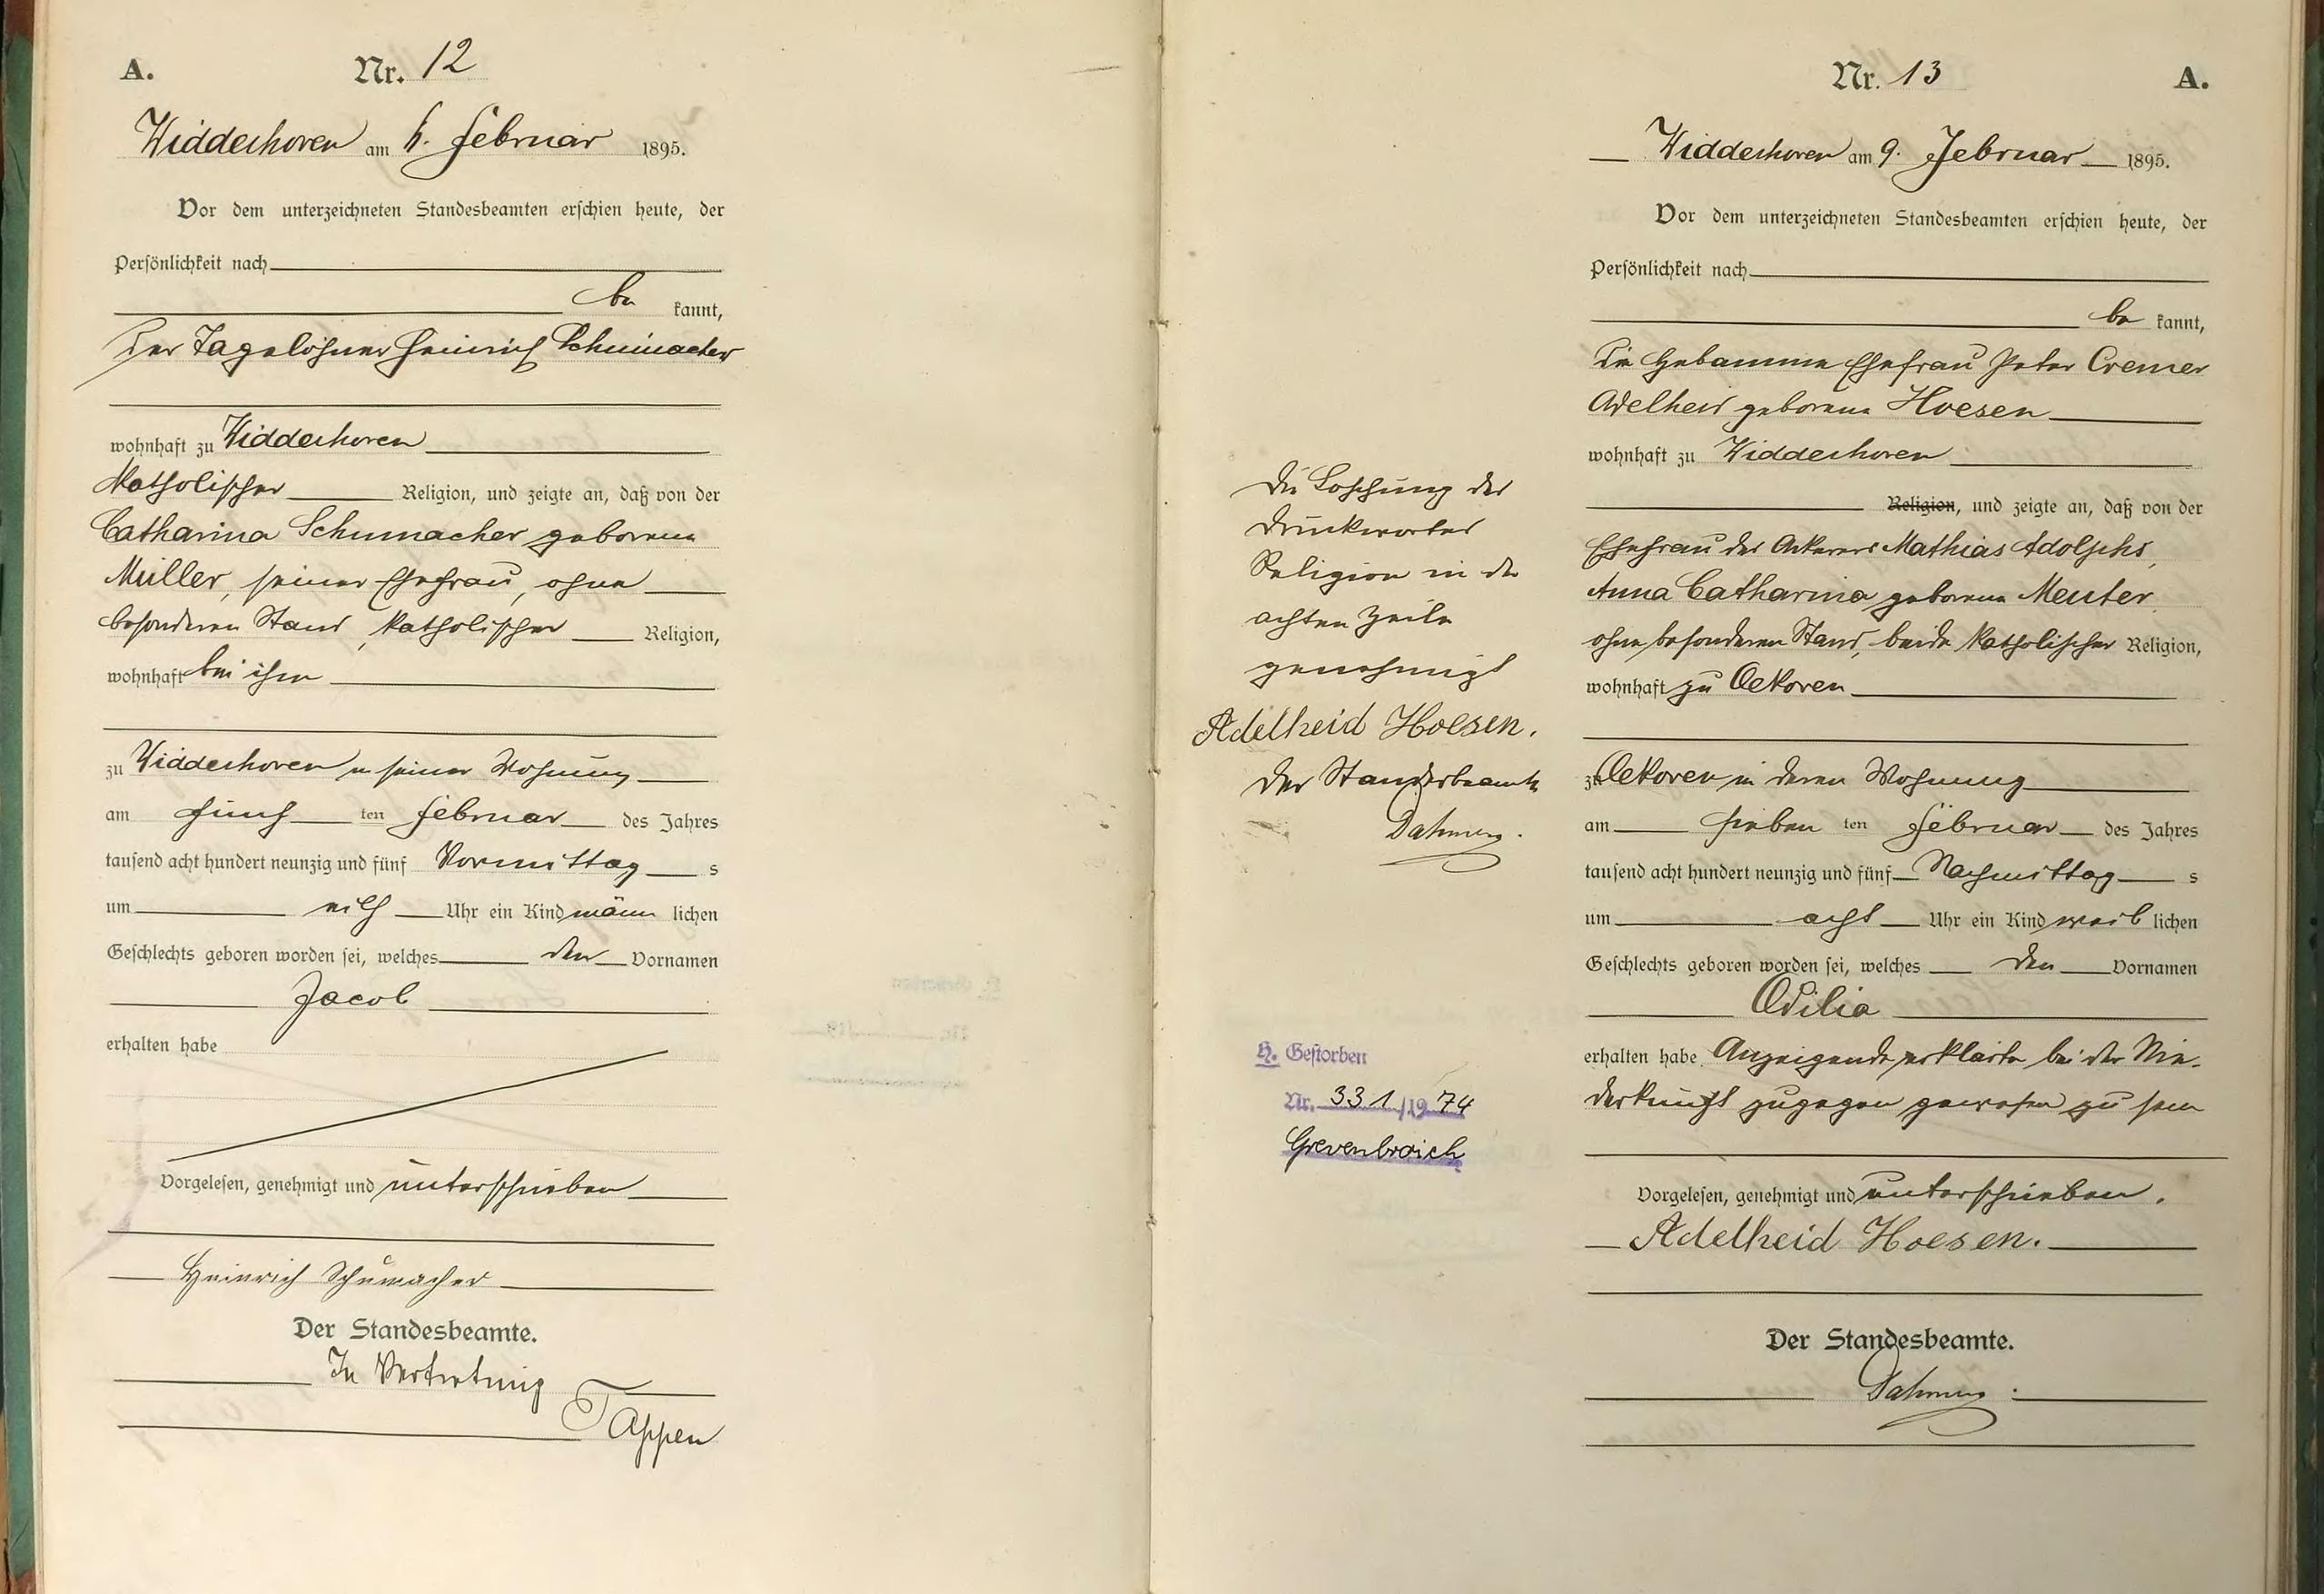 A.
Nr. 12
Widdeshoven am 6. Februar 1895.
Vor dem unterzeichneten Standesbeamten erschien heute, der
Persönlichkeit nach
be kannt,
Der Tagelöhner Heinrich Schumacher
wohnhaft zu Widdeshoven
katholischer Religion, und zeigte an, daß von der
Catharina Schumacher geborene
Müller, seiner Ehefrau, ohne
besonderen Stand, katholischer Religion,
wohnhaft bei ihm
zu Widdeshoven in seiner Wohnung
am fünf ten Februar des Jahres
tausend acht hundert neunzig und fünf Vormittag s
um elf Uhr ein Kind männ lichen
Geschlechts geboren worden sei, welches den Vornamen
Jacob
erhalten habe
Vorgelesen, genehmigt und unterschrieben
Heinrich Schumacher
Der Standesbeamte.
In Vertretung
Tappen
Nr. 13
A.
Widdeshoven am 9. Februar 1895.
Vor dem unterzeichneten Standesbeamten erschien heute, der
Persönlichkeit nach
be kannt,
Die Hebamme Ehefrau Peter Cremer
Adelheid geborene Hoesen
wohnhaft zu Widdeshoven
Religion, und zeigte an, daß von der
Ehefrau des Ackerers Mathias Adolphs,
Anna Catharina geborene Meuter
ohne besonderen Stand, beide katholischer Religion,
wohnhaft zu Oekoven
zu Oekoven in deren Wohnung
am sieben ten Februar des Jahres
tausend acht hundert neunzig und fünf Nachmittag s
um acht Uhr ein Kind weib lichen
Geschlechts geboren worden sei, welches den Vornamen
Odilia
erhalten habe. Anzeigende erklärte bei der Nie-
derkunft zugegen gewesen zu sein
Vorgelesen, genehmigt und unterschrieben.
Adelheid Hoesen.
Der Standesbeamte.
Die Löschung des
Druckwortes
Religion in der
achten Zeile
genehmigt
Adelheid Hoesen.
Der Standesbeamte
H. Gestorben
Nr. 331/1974
Grevenbroich